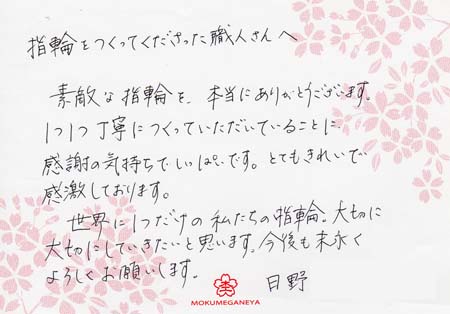 指輪をつくってくださった職人さんへ
素敵な指輪を、本当にありがとうございます。
1つ1つ丁寧につくっていただいていることに、
感謝の気持ちでいっぱいです。とてもきれいで
感激しております。
世界に1つだけの私たちの指輪。大切に
大切にしていきたいと思います。今後も末永く
よろしくお願いします。
日野
MOKUMEGANEYA